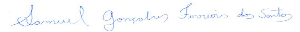 Samuel Gonçalves Ferreira dos Santos